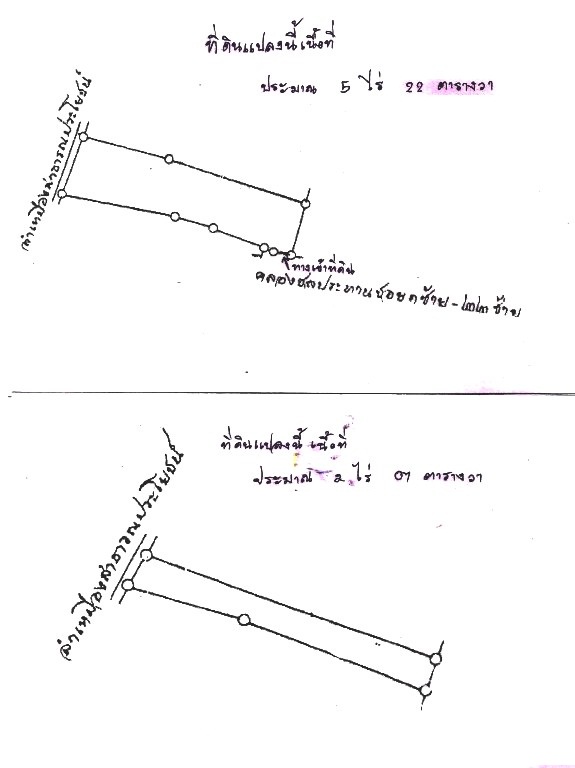 ที่ดินแปลงนี้เนื้อที่
ประมาณ 5 ไร่ 22 ตารางวา
ลำเหมืองสาธารณประโยชน์
ทางเข้าที่ดิน
คลองชลประทานซอย ๑ซ้าย-๒๓ซ้าย
ที่ดินแปลงนี้ เนื้อที่
ประมาณ 2 ไร่ 07 ตารางวา
ลำเหมืองสาธารณประโยชน์